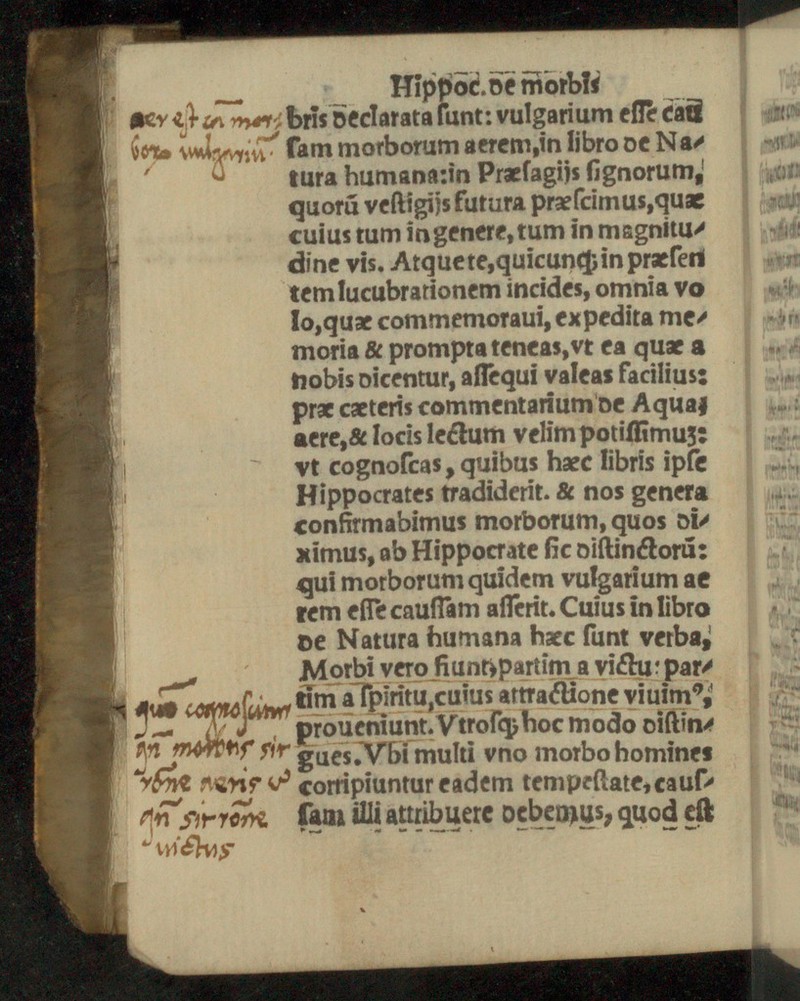 Hippoc. de morbis
bris declarata sunt: vulgarium esse cauſ
ſam morborum aerem, in libro de Na⸗
tura humana: in Præſagijs ſignorum,
quorū veſtigijs futura præſcimus, quæ
cuius tum in genere, tum in magnitu⸗
dine vis. Atque te, quicunqꝫ in præſen
tem lucubrationem incides, omnia vo
lo, quæ commemoraui, expedita me⸗
moria & prompta teneas, vt ea quæ a
nobis dicentur, aſſequi valeas facilius:
præ cæteris commentarium de Aqua,
aere, & locis lectum velim potiſſimuꝫ:
vt cognoſcas, quibus hæc libris ipſe
Hippocrates tradiderit. & nos genera
confirmabimus morborum, quos di⸗
ximus, ab Hippocrate ſic diſtinctorū:
qui morborum quidem vulgarium ae
rem eſſe cauſſam aſſerit. Cuius in libro
de Natura humana hæc ſunt verba,
Morbi vero fiunt, partim a victu: par⸗
tim a ſpiritu, cuius attractione viuimꝰ,
proueniunt. Vtroſqꝫ hoc modo diſtin⸗
gues. Vbi multi vno morbo homines
corripiuntur eadem tempeſtate, cauſ⸗
ſam illi attribuere debemus, quod eſt
aer est
vulgariū
quo
an morbus sit
an sit
victus